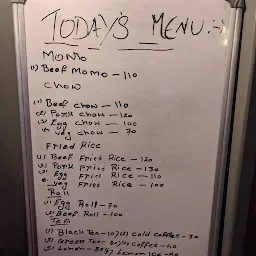 TODAY'S MENU :-
MOMO
(1) Beef MOMO - 110
CHOW
(1) Beef chow - 110
(2) Pork chow - 120
(3) Egg chow - 100
veg chow - 70
Fried Rice
(1) Beef Fried Rice - 120
(2) Pork Fried Rice - 130
(3) Egg Fried Rice - 110
veg Fried Rice - 100
Roll
(1) Egg Roll - 70
(2) Beef Roll - 100
TEA
(1) Black Tea - Cold Coffee - 30
(2) Green Tea - Coffee - 40
(3) Lemon - Lemon Ice